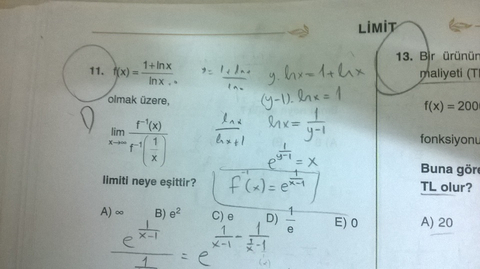 LİMİT
11. f(x) = 1+lnx / lnx
olmak üzere,
lim x→∞ f⁻¹(x) / f⁻¹(1/x)
limiti neye eşittir?
A) ∞ B) e² C) e D) 1/e E) 0
y. lnx = 1 + lnx
(y-1). lnx = 1
lnx / lnx+1
lnx = 1/(y-1)
e^(1/(y-1)) = x
f⁻¹(x) = e^(1/(x-1))
e^(1/(x-1)) / 1 = e^(1/(x-1) - 1/(1/x - 1))
13. Bir ürünün
maliyeti (TL
f(x) = 200
fonksiyonu
Buna göre
TL olur?
A) 20